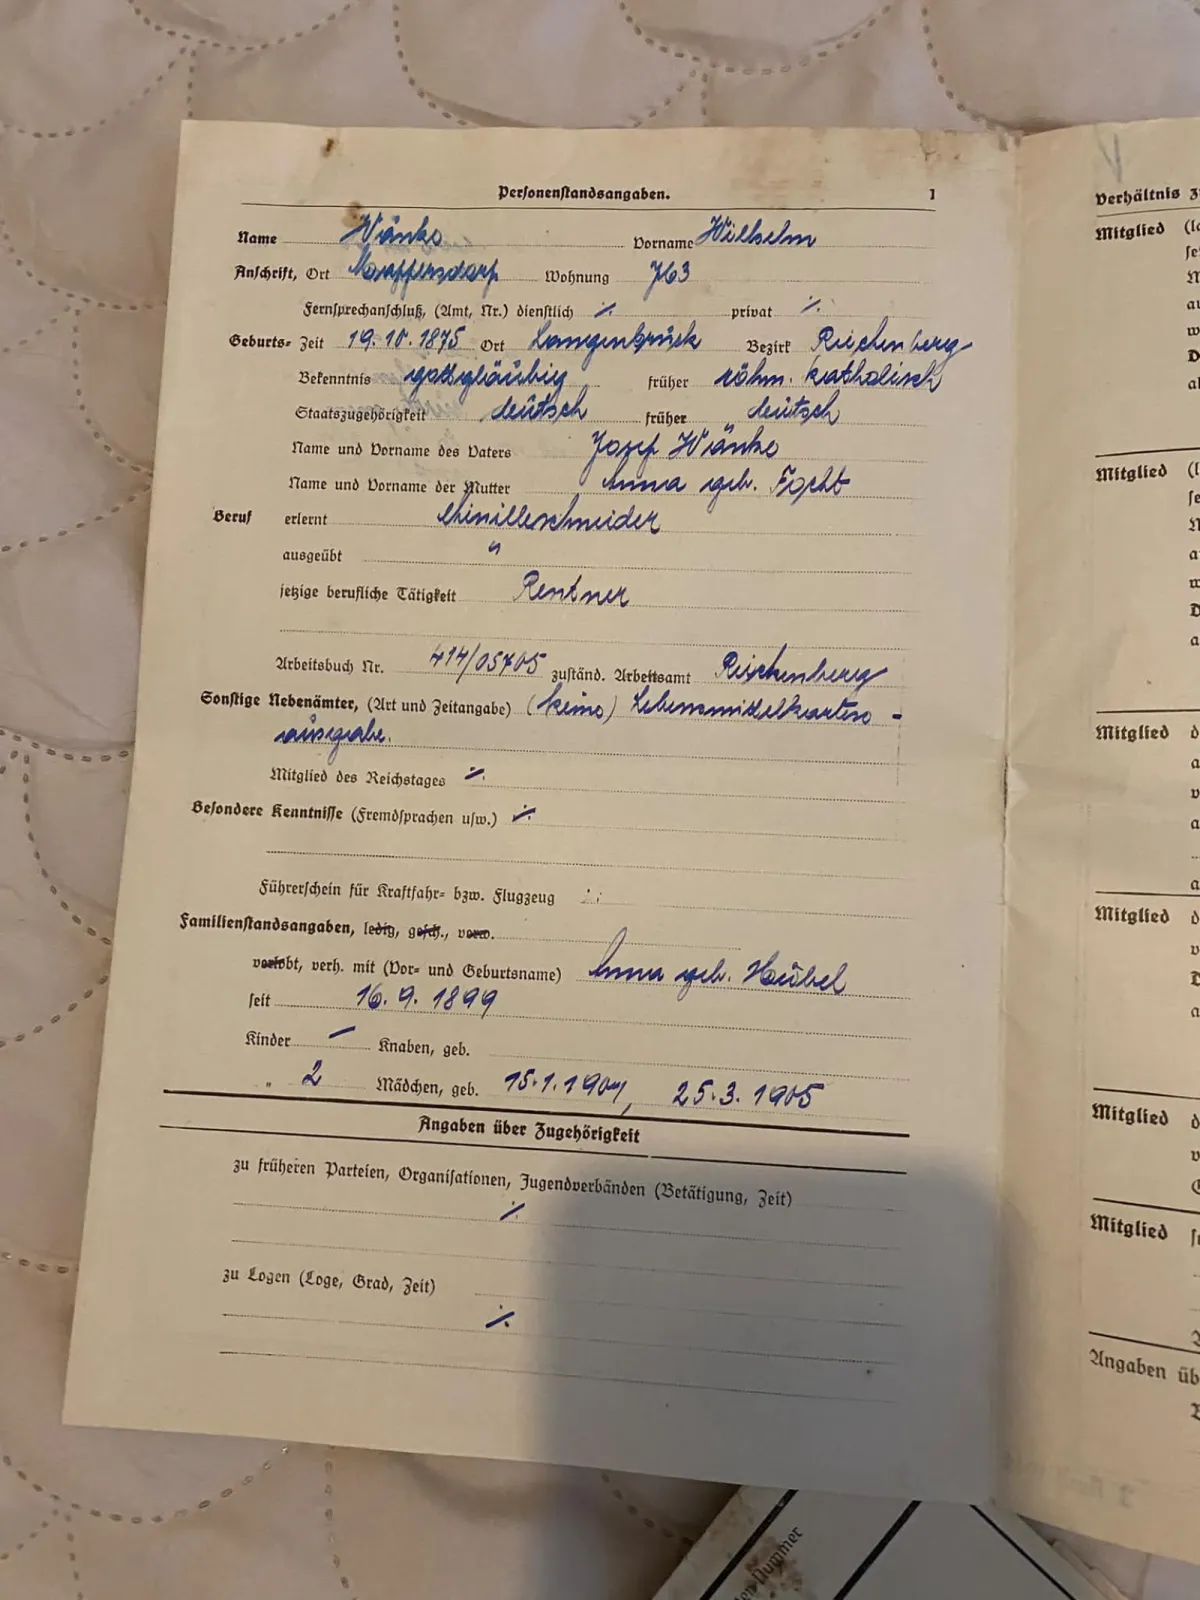 Personenstandsangaben. 1
Name Wänke Vorname Wilhelm
Anschrift, Ort Maffersdorf Wohnung 763
Fernsprechanschluß, (Amt, Nr.) dienstlich ⁒ privat ⁒
Geburts- Zeit 19.10.1875 Ort Langenbrück Bezirk Reichenberg
Bekenntnis gottgläubig früher röhm. katholisch
Staatszugehörigkeit deutsch früher deutsch
Name und Vorname des Vaters Josef Wänke
Name und Vorname der Mutter Anna geb.
Beruf erlernt Chinilleschneider
ausgeübt "
jetzige berufliche Tätigkeit Rentner
Arbeitsbuch Nr. 414/05705 zuständ. Arbeitsamt Reichenberg
Sonstige Nebenämter, (Art und Zeitangabe) (keine) Lebensmittelkarten-
ausgabe.
Mitglied des Reichstages ⁒
Besondere Kenntnisse (Fremdsprachen usw.) ⁒
Führerschein für Kraftfahr- bzw. Flugzeug
Familienstandsangaben, ledig, gesch., verw.
verlobt, verh. mit (Vor- und Geburtsname) Anna geb. Hübel
seit 16.9.1899
Kinder — Knaben, geb.
" 2 Mädchen, geb. 15.1.1901, 25.3.1905
Angaben über Zugehörigkeit
zu früheren Parteien, Organisationen, Jugendverbänden (Betätigung, Zeit)
⁒
zu Logen (Loge, Grad, Zeit)
⁒
Verhältnis
Mitglied
Mitglied
Mitglied
Mitglied
Mitglied
Mitglied
Angaben
Nummer